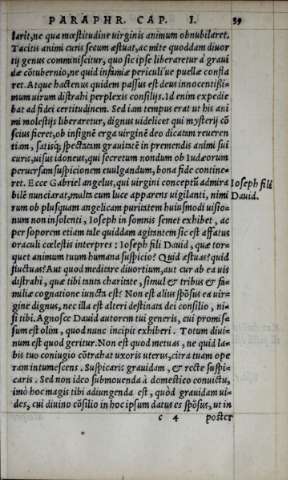 PARAPHR. CAP. I. 59
larit, ne qua mœstitudine uirginis animum obnubilaret.
Tacitis animi curis secum æstuat, ac mite quoddam diuor
tij genus comminiscitur, quo sic ipse liberaretur à graui
dæ cōtubernio, ne quid infimiæ periculi'ue puellæ confla
ret. Atque hactenus quidem passus est deus innocentissi=
mum uirum distrahi perplexis consilijs. Id enim expedie
bat ad fidei certitudinem. Sed iam tempus erat ut his ani
mi molestijs liberaretur, dignus uidelicet qui mysterij cō
scius fieret, ob insignē erga uirginē deo dicatam reueren
tiam, satisq; spectatam grauitatē in premendis animi sui
curis, uisus idoneus, qui secretum nondum ob Iudæorum
peruersam suspicionem euulgandum, bona fide contine=
ret. Ecce Gabriel angelus, qui uirgini conceptū admira
bilē nunciarat, multa cum luce apparens uigilanti, nimi
rum ob plusquam angelicam puritatem huiusmodi uisio=
num non insolenti, Ioseph in somnis semet exhibet, ac
per soporem etiam tale quiddam agitantem sic est affatus
oraculi cœlestis interpres: Ioseph fili Dauid, quæ tor=
quet animum tuum humana suspicio? Quid æstuas? quid
fluctuas? Aut quod meditare diuortium, aut cur ab ea uis
distrahi, quæ tibi iunta charitate, simul & tribus & fa=
miliæ cognatione iuncta est? Non est alius spōsus ea uir=
gine dignus, nec illa est alteri destinata dei consilio, ni=
si tibi. Agnosce Dauid autorem tui generis, cui promissa
sum est olim, quod nunc incipit exhiberi. Totum diui=
num est quod geritur. Non est quod metuas, ne quid la=
bis tuo coniugio cōtrahat uxoris uterus, citra tuam ope
ram intumescens. Suspicaris grauidam, & recte suspi=
caris. Sed non ideo submouenda à domestico conuictu,
imò hoc magis tibi adiungenda est, quòd grauidam ui=
des, cui diuino cōsilio in hoc ipsum datus es spōsus, ut in
c 4 poster
Ioseph fili
Dauid.